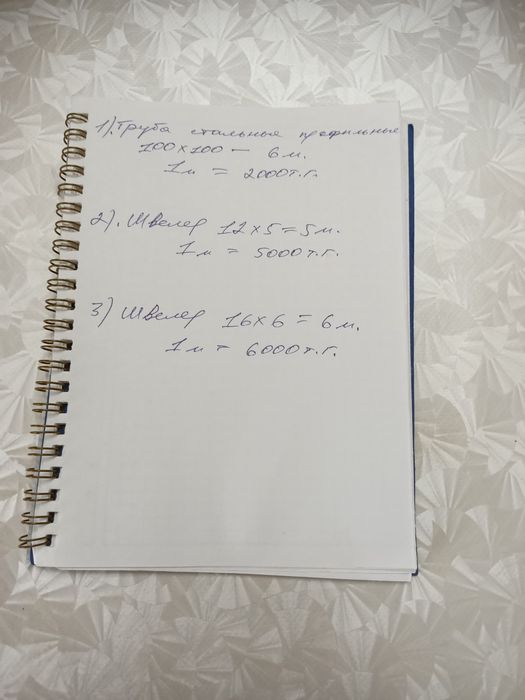 1). Труба стальные профильные
100×100 – 6 м.
1 м = 2000 т.г.
2). Швелер 12×5 = 5 м.
1 м = 5000 т.г.
3) Швелер 16×6 = 6 м.
1 м = 6000 т.г.